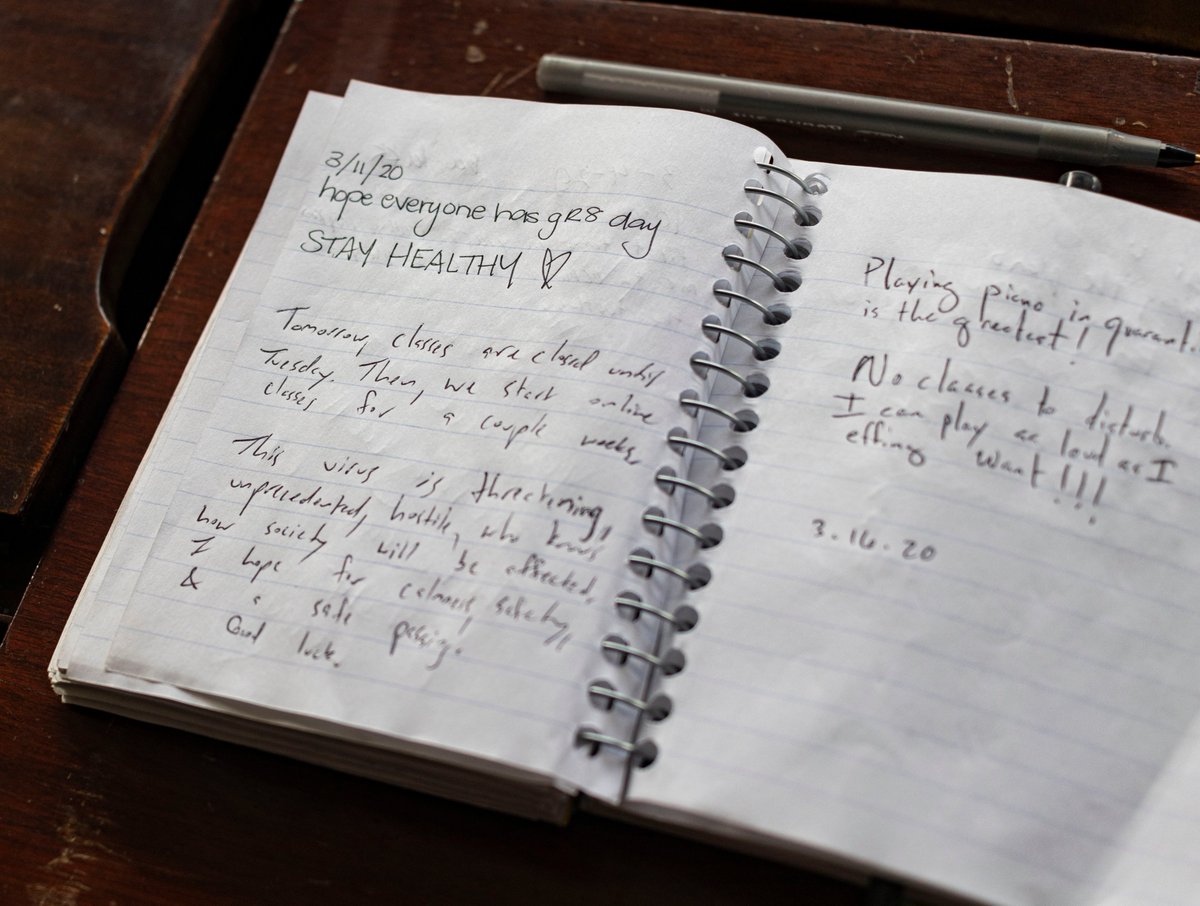 3/11/20
hope everyone has gR8 day
STAY HEALTHY
Tomorrow, classes are closed until
Tuesday. Then, we start online
classes for a couple weeks.
This virus is threatening,
unprecedented, hostile, who knows
how society will be affected.
I hope for calmness, safety,
& a safe passing.
Good luck.
Playing piano in quarant.
is the greatest!
No classes to disturb.
I can play as loud as I
effing want!!!
3.16.20